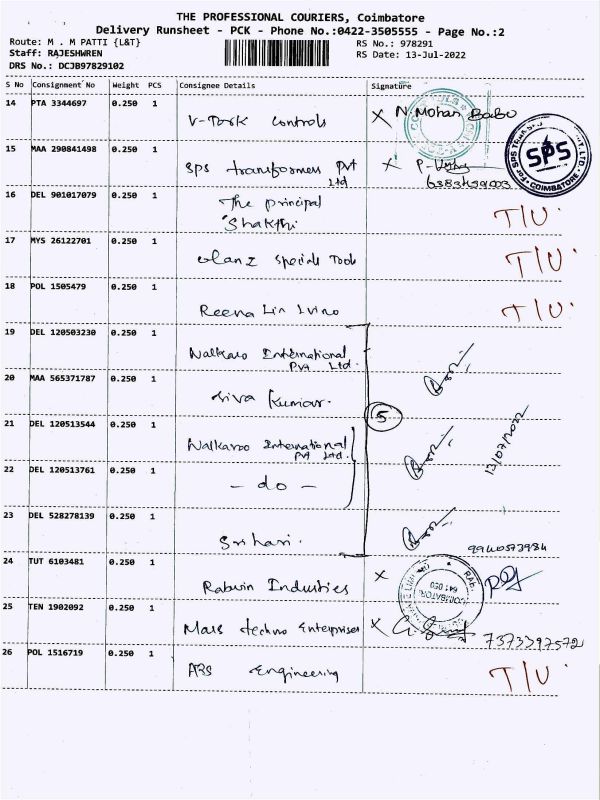 THE PROFESSIONAL COURIERS, Coimbatore
Delivery Runsheet - PCK - Phone No.:0422-3505555 - Page No.:2
Route: M . M PATTI {L&T} RS No.: 978291
Staff: RAJESHWREN RS Date: 13-Jul-2022
DRS No.: DCJB97829102
S No Consignment No Weight PCS Consignee Details Signature
14 PTA 3344697 0.250 1 V-Tork controls X N. Mohan Babu
15 MAA 290841498 0.250 1 SPS transformers Pvt Ltd X
SPS
COIMBATORE
16 DEL 901017079 0.250 1 The principal Shakthi T/U
17 MYS 26122701 0.250 1 Glanz Special Tools T/U
18 POL 1505479 0.250 1 Reena Lin T/U
19 DEL 120503230 0.250 1 Walkaro International Pvt Ltd.
20 MAA 565371787 0.250 1 Siva Kumar.
5
21 DEL 120513544 0.250 1 Walkaroo International Pvt Ltd.
13/07/2022
22 DEL 120513761 0.250 1 - do -
23 DEL 528278139 0.250 1 Srihari.
9940573984
24 TUT 6103481 0.250 1 Rabwin Industries X
COIMBATORE
641 050
25 TEN 1902092 0.250 1 Mars techno Enterprises X 7373397572
26 POL 1516719 0.250 1 ABS Engineering T/U